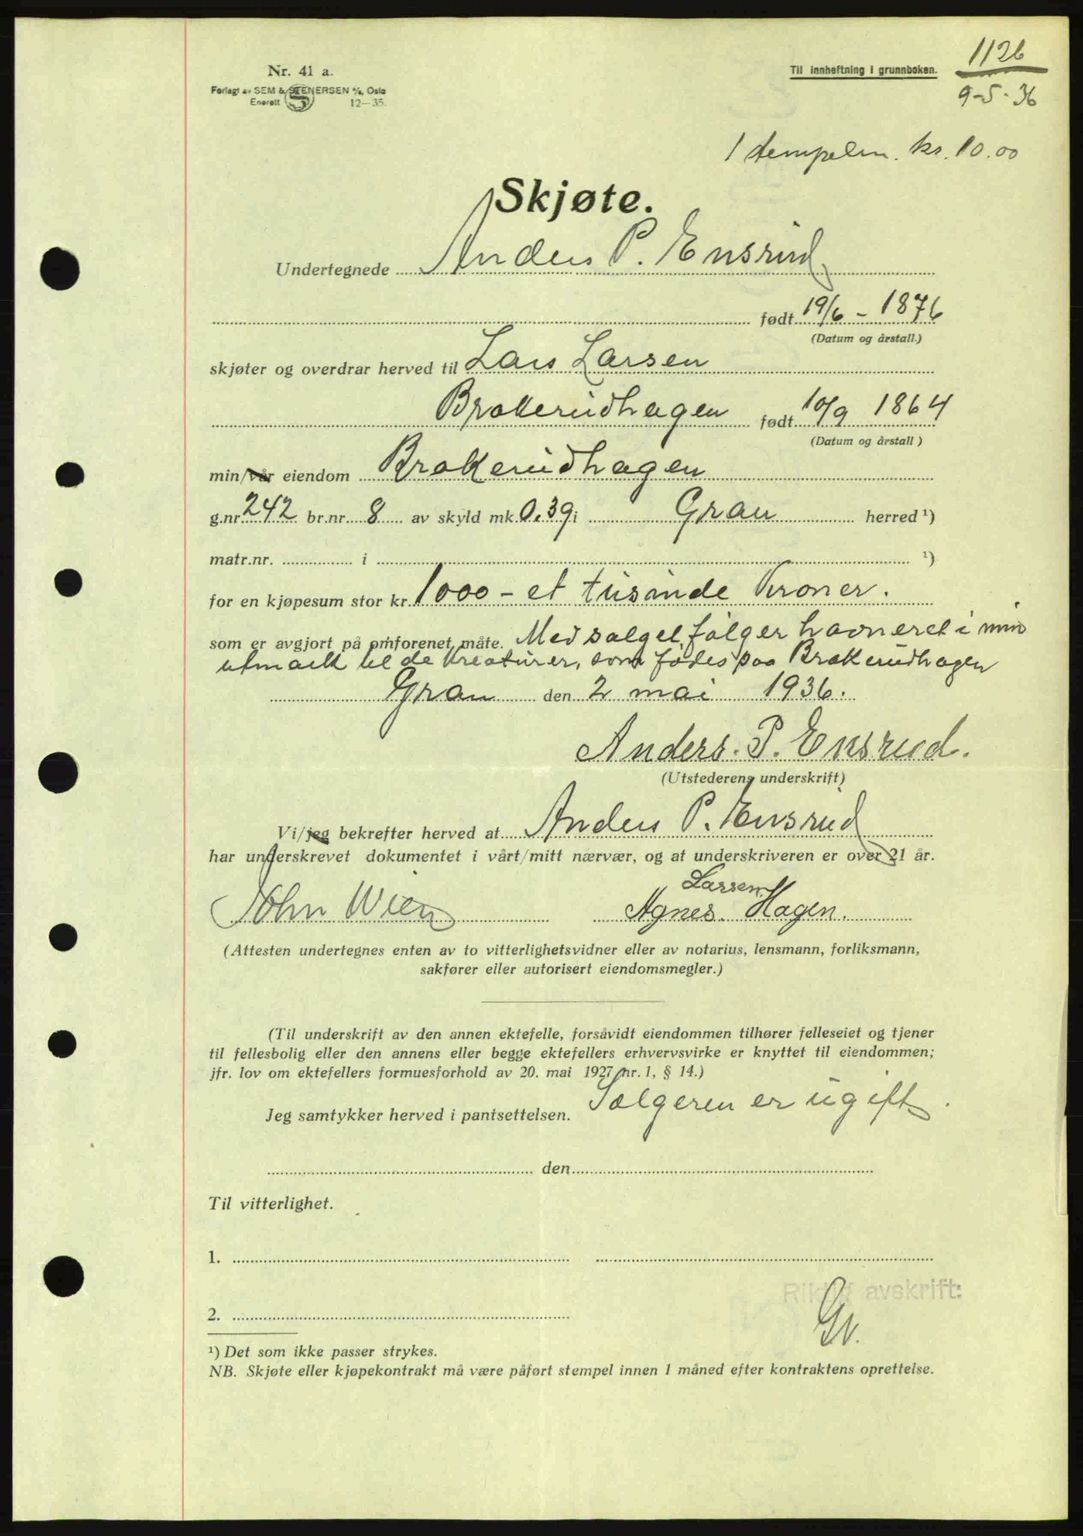 1126
Nr. 41 a.
Til innheftning i grunnboken.
Forlagt av SEM & STENERSEN A/S, Oslo
Enerett 12—35.
9-5-36
1 stempelm. kr. 10.00
Skjøte.
Undertegnede Anders P. Ensrud
født 19/6 - 1876
(Datum og årstall.)
skjøter og overdrar herved til Lars Larsen
Brakerudhagen født 10/9 1864
(Datum og årstall)
min/vår eiendom Brakerudhagen
g.nr. 242 br.nr. 8 av skyld mk. 0.39 i Gran herred ¹)
matr.nr. i ¹)
for en kjøpesum stor kr. 1000 - et tusinde Kroner.
som er avgjort på omforenet måte. Med salget følger havneret i min
utmark til de kreaturer, som fødes paa Brakerudhagen
Gran den 2 mai 1936.
Anders. P. Ensrud.
(Utstederens underskrift)
Vi/jeg bekrefter herved at Anders P. Ensrud
har underskrevet dokumentet i vårt/mitt nærvær, og at underskriveren er over 21 år.
John Wien Agnes Larsen Hagen.
(Attesten undertegnes enten av to vitterlighetsvidner eller av notarius, lensmann, forliksmann,
sakfører eller autorisert eiendomsmegler.)
(Til underskrift av den annen ektefelle, forsåvidt eiendommen tilhører felleseiet og tjener
til fellesbolig eller den annens eller begge ektefellers erhvervsvirke er knyttet til eiendommen;
jfr. lov om ektefellers formuesforhold av 20. mai 1927 nr. 1, § 14.)
Jeg samtykker herved i pantsettelsen. Sælgeren er ugift.
den
Til vitterlighet.
1.
Riktig avskrift:
2.
Gv.
¹) Det som ikke passer strykes.
NB. Skjøte eller kjøpekontrakt må være påført stempel innen 1 måned efter kontraktens oprettelse.